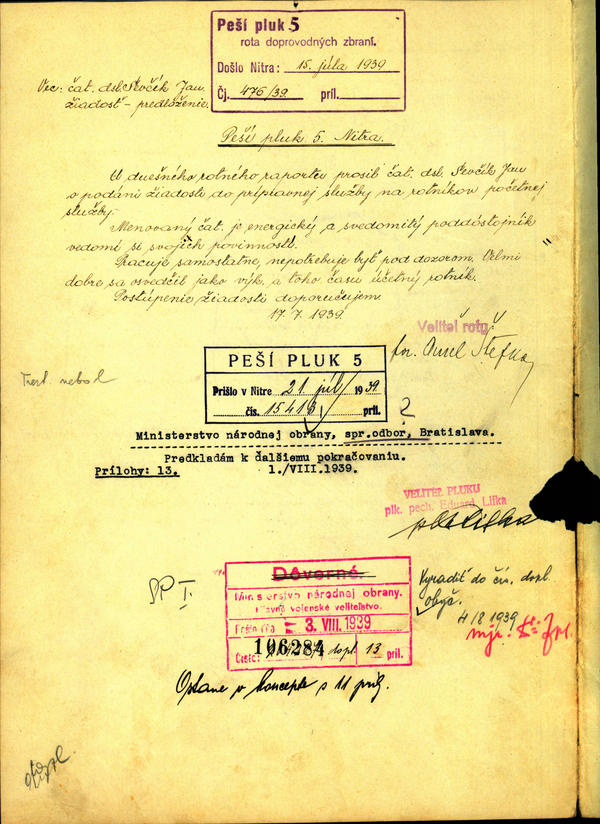 Peší pluk 5
rota doprovodných zbraní.
Došlo Nitra: 15. júla 1939
Čj. 476/39. príl.
Vec: čat. dsl. Ševčík Jan.
žiadosť - predloženie.
Peší pluk 5. Nitra.
U dnešného rotného raportu prosil čat. dsl. Ševčík Jan
o podání žiadosti do prípravnej služby na rotníkov početnej
služby.
Menovaný čat. je energický a svedomitý poddôstojník
vedomí si svojích povinností.
Pracuje samostatne, nepotrebuje byť pod dozorom. Velmi
dobre sa osvedčil jako výk. a toho času účetný rotník.
Postúpenie žiadosti doporučujem.
17. 7. 1939.
Veliteľ roty:
Aurel Štefka
Trest. nebol
PEŠÍ PLUK 5
Prišlo v Nitre 21. júl/ 1939
čís. príl.
2
Ministerstvo národnej obrany, spr.odbor, Bratislava.
Predkladám k ďalšiemu pokračovaniu.
Prílohy: 13. 1./VIII.1939.
VELITEĽ PLUKU
plk. pech. Eduard Lifka
Lifka
Dôverné.
Ministerstvo národnej obrany.
Hlavné vojenské veliteľstvo.
Došlo dňa - 3. VIII. 1939
106284
Číslo: dopl 13 príl.
I.
Vyradiť do čís. dopl.
obyč.
4/8 1939
mjr.
Ostane v koncepte s 11 príl.